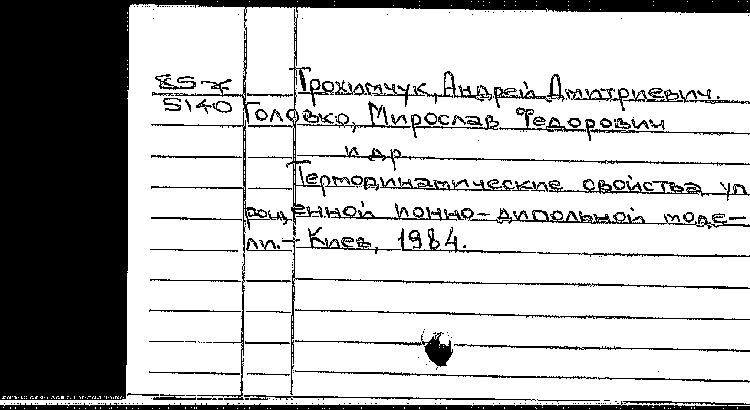 85-7
5140
Трохимчук, Андрей Дмитриевич.
Головко, Мирослав Федорович
и др.
Термодинамические свойства уп
рощенной ионно-дипольной моде-
ли. – Киев, 1984.